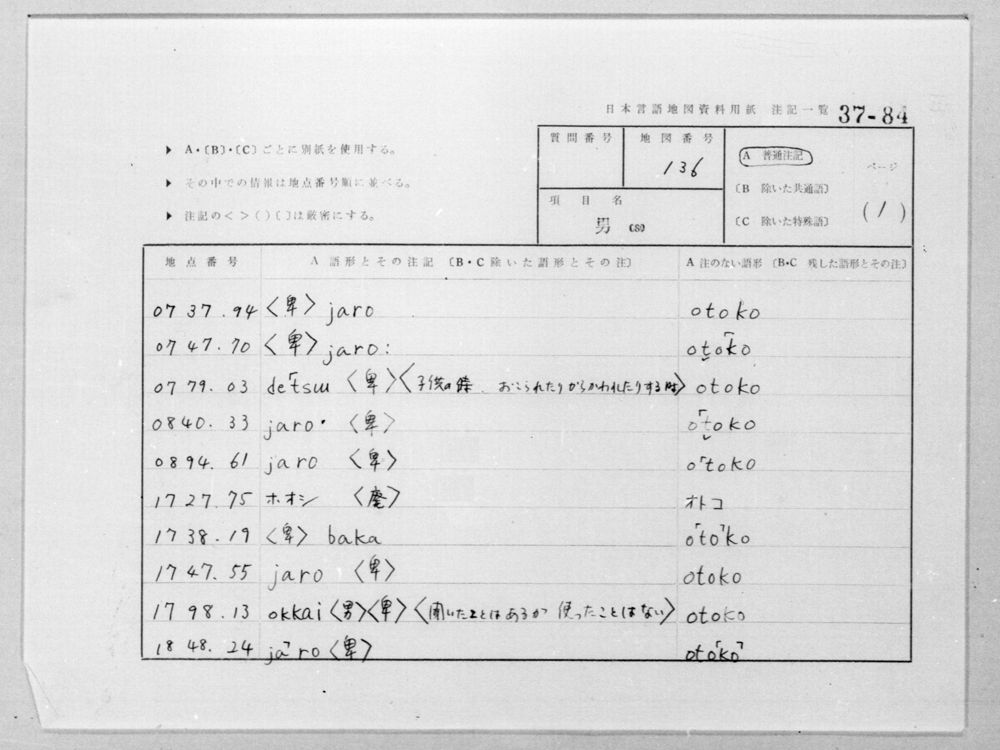 日本言語地図資料用紙 注記一覧 37-84
▶ A・〔B〕・〔C〕ごとに別紙を使用する。
▶ その中での情報は地点番号順に並べる。
▶ 注記の< >( )〔 〕は厳密にする。
質問番号 地図番号
136
項目名
男
A 普通注記
〔B 除いた共通語〕
〔C 除いた特殊語〕
ページ
(1)
地点番号 A 語形とその注記 〔B・C 除いた語形とその注〕 A 注のない語形 〔B・C 残した語形とその注〕
07 37.94 〈卑〉 jaro otoko
07 47.70 〈卑〉 jaro: oto「ko
07 79.03 de「tsɯ 〈卑〉〈子供の際、おこられたりからかわれたりする時〉 otoko
08 40.33 jaro・ 〈卑〉 o「toko
08 94.61 jaro 〈卑〉 o「toko
17 27.75 ホオシ 〈廃〉 オトコ
17 38.19 〈卑〉 baka o「to」ko
17 47.55 jaro 〈卑〉 otoko
17 98.13 okkai〈男〉〈卑〉〈聞いたことはあるが 使ったことはない〉 otoko
18 48.24 ja」ro〈卑〉 oto「ko」